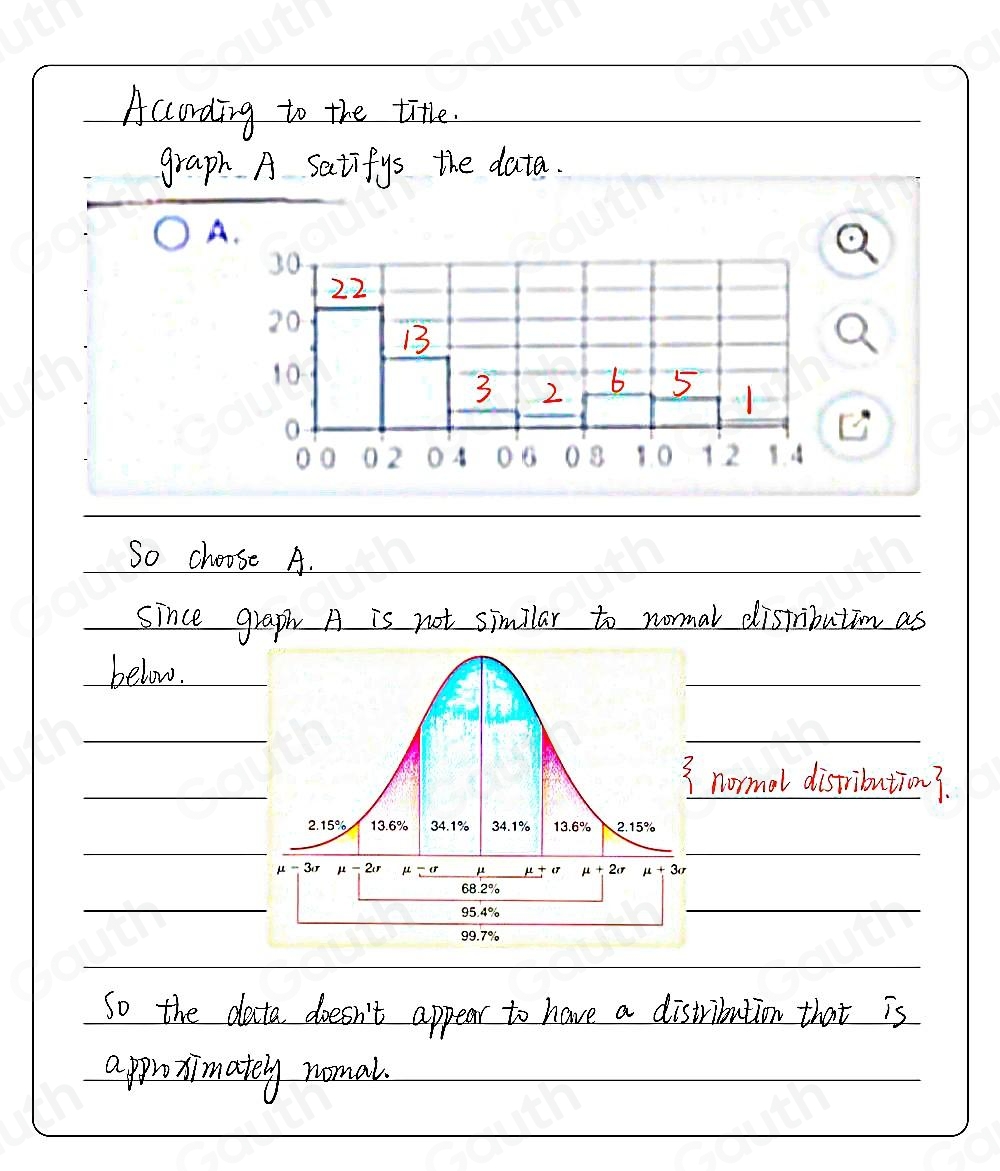 According to the title.
graph A satifys the data.
A.
30
22
20
13
10
3 2 6 5 1
0
0.0 0.2 0.4 0.6 0.8 1.0 1.2 1.4
So choose A.
Since graph A is not similar to normal distribution as
below.
{ normal distribution }.
2.15% 13.6% 34.1% 34.1% 13.6% 2.15%
μ − 3σ μ − 2σ μ − σ μ μ + σ μ + 2σ μ + 3σ
68.2%
95.4%
99.7%
So the data doesn't appear to have a distribution that is
approximately nomal.
Gauth